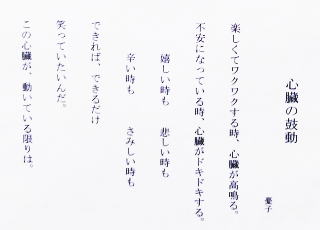 心臓の鼓動
優子
楽しくてワクワクする時、心臓が高鳴る。
不安になっている時、心臓がドキドキする。
嬉しい時も　悲しい時も
辛い時も　さみしい時も
できれば、できるだけ
笑っていたいんだ。
この心臓が、動いている限りは。